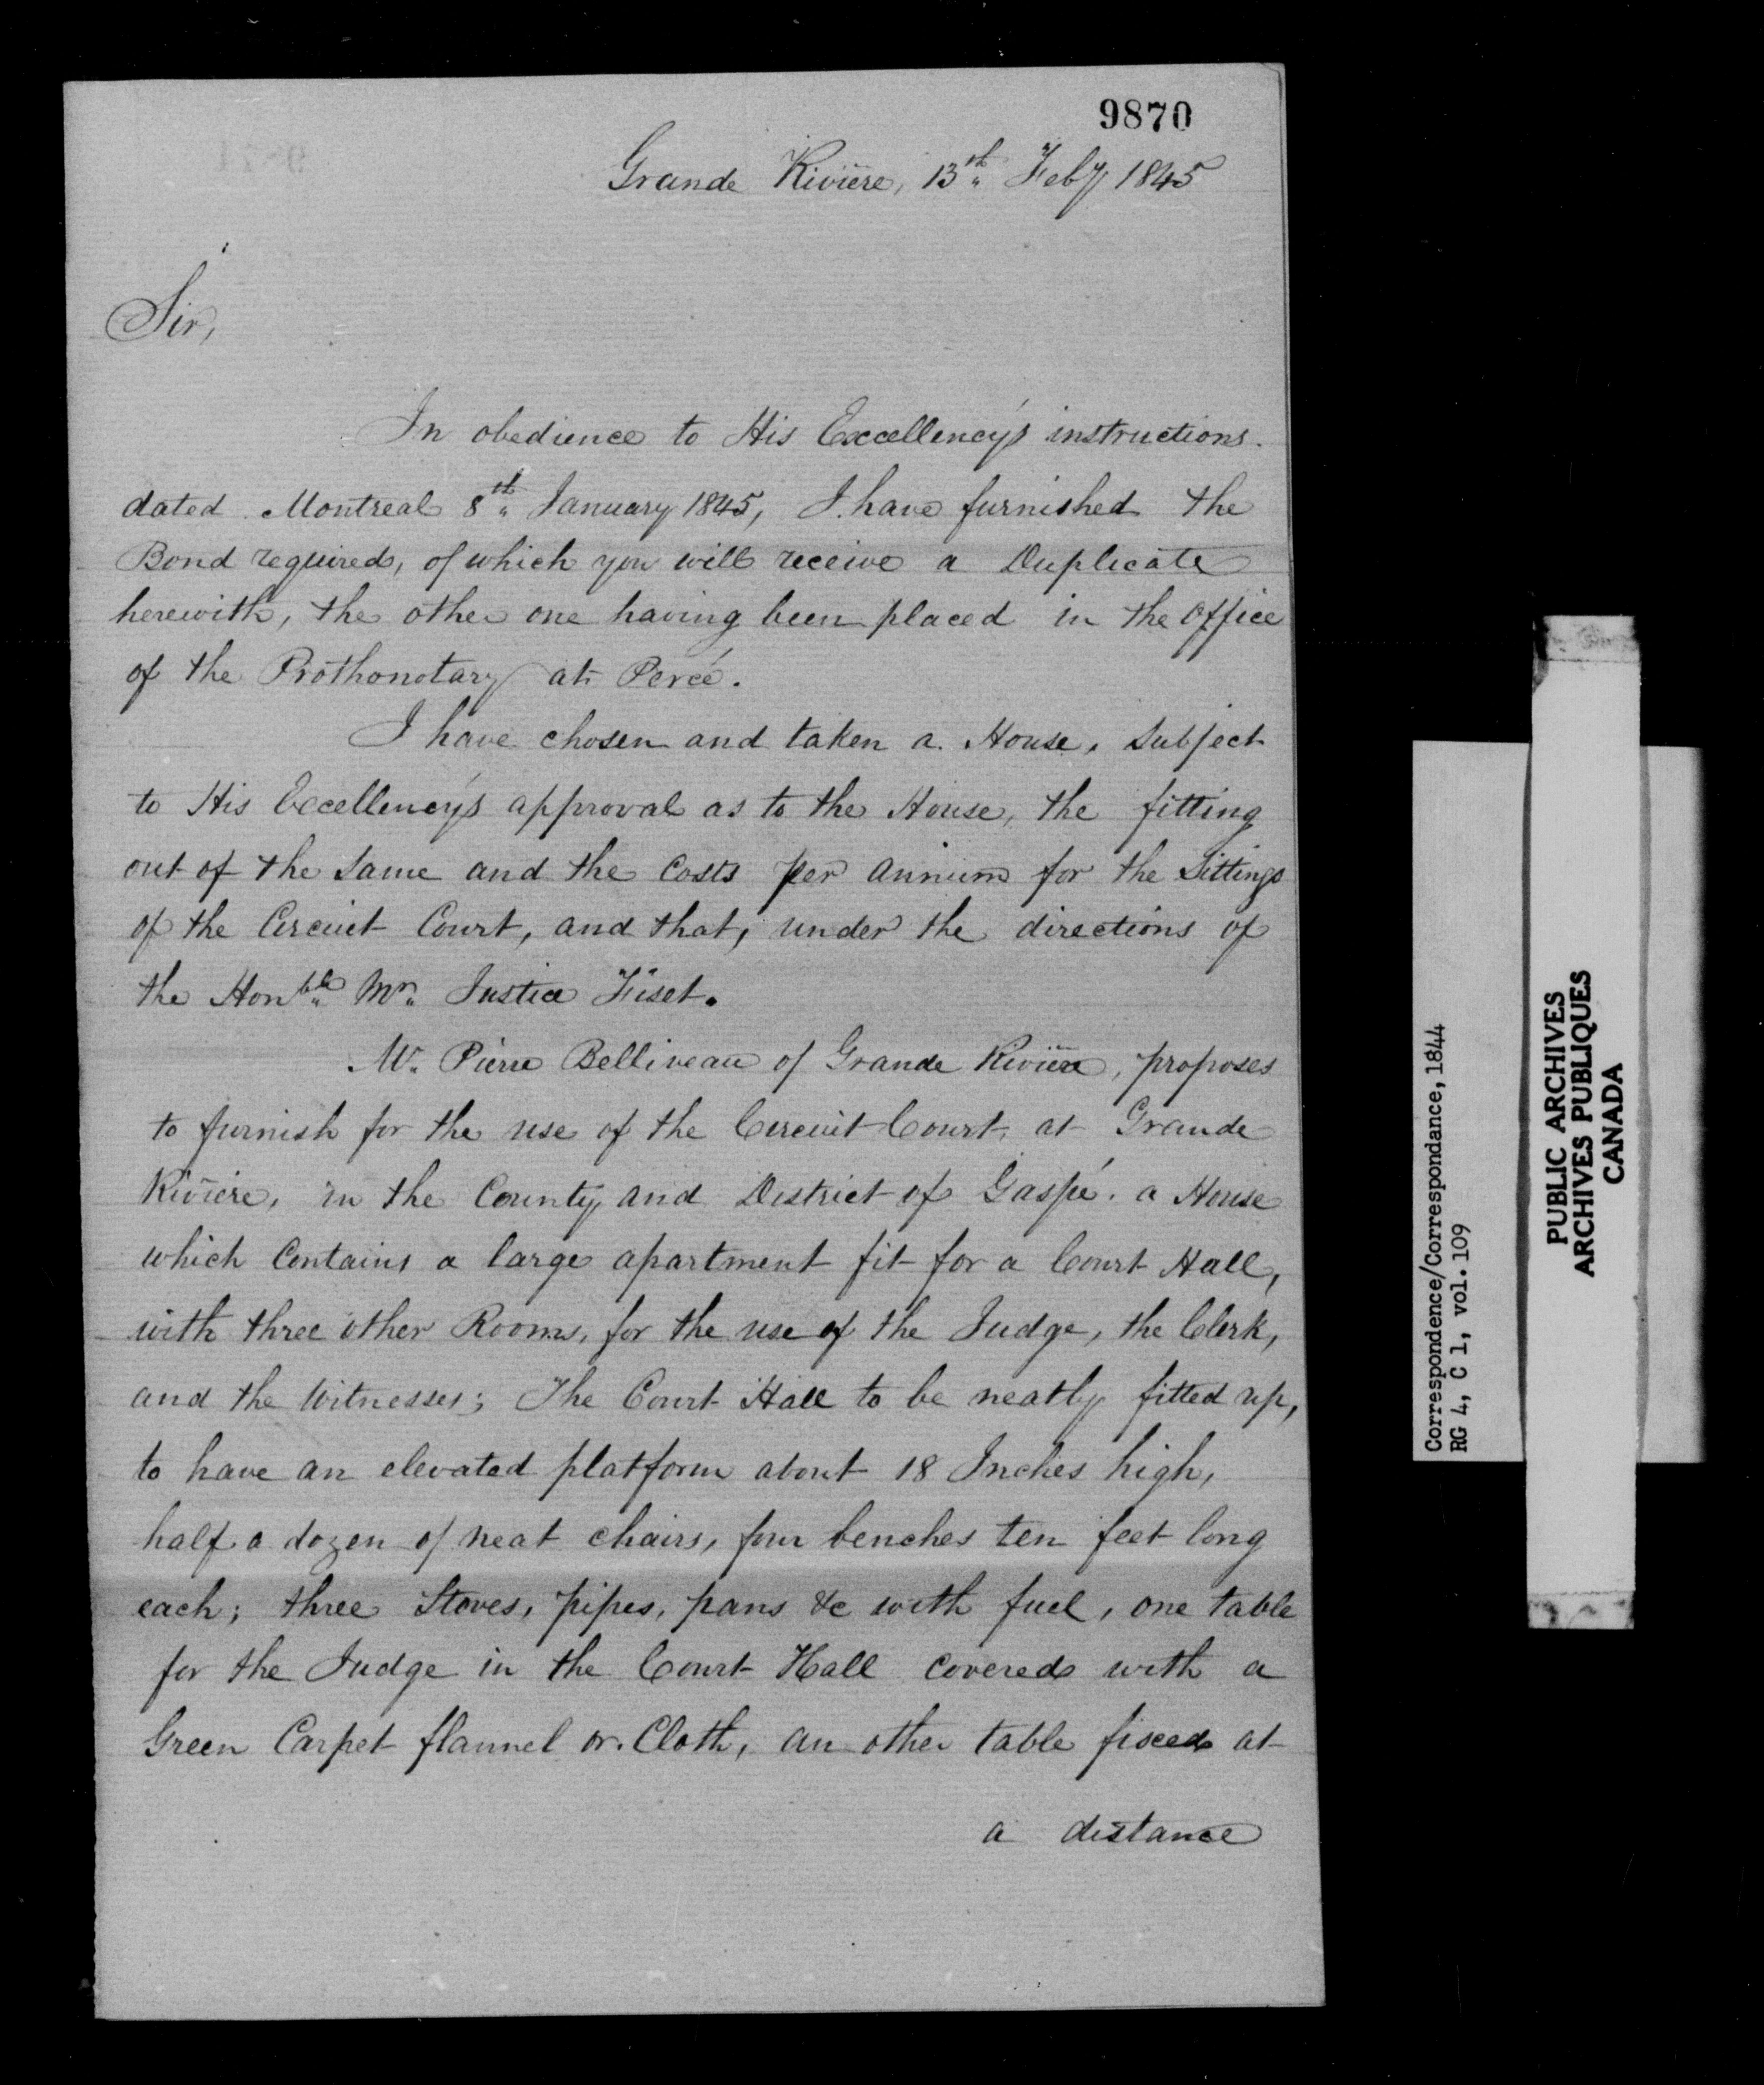 9870
Grande Rivière, 13th Feby 1845
Sir,
In obedience to His Excellency's instructions.
dated Montreal 8th January 1845, I have furnished the
Bond required, of which you will receive a Duplicate
herewith, the other one having been placed in the Office
of the Prothonotary at Percé.
I have chosen and taken a House, subject
to His Excellency's approval as to the House, the fitting
out of the same and the Costs per annum for the Sittings
of the Circuit Court, and that, under the directions of
the Honble Mr. Justice Fiset.
Mr. Pierre Belliveau of Grande Rivière, proposes
to furnish for the use of the Circuit Court, at Grande
Rivière, in the County and District of Gaspé. a House
which Contains a large apartment fit for a Court Hall,
with three other Rooms, for the use of the Judge, the Clerk,
and the Witnesses; The Court Hall to be neatly fitted up,
to have an elevated platform about 18 Inches high,
half a dozen of neat chairs, four benches ten feet long
each; three Stoves, pipes, pans &c with fuel, one table
for the Judge in the Court Hall covered with a
Green Carpet flannel or Cloth, an other table fixed at
a distance
Correspondence/Correspondance, 1844
RG 4, C 1, vol. 109
PUBLIC ARCHIVES
ARCHIVES PUBLIQUES
CANADA